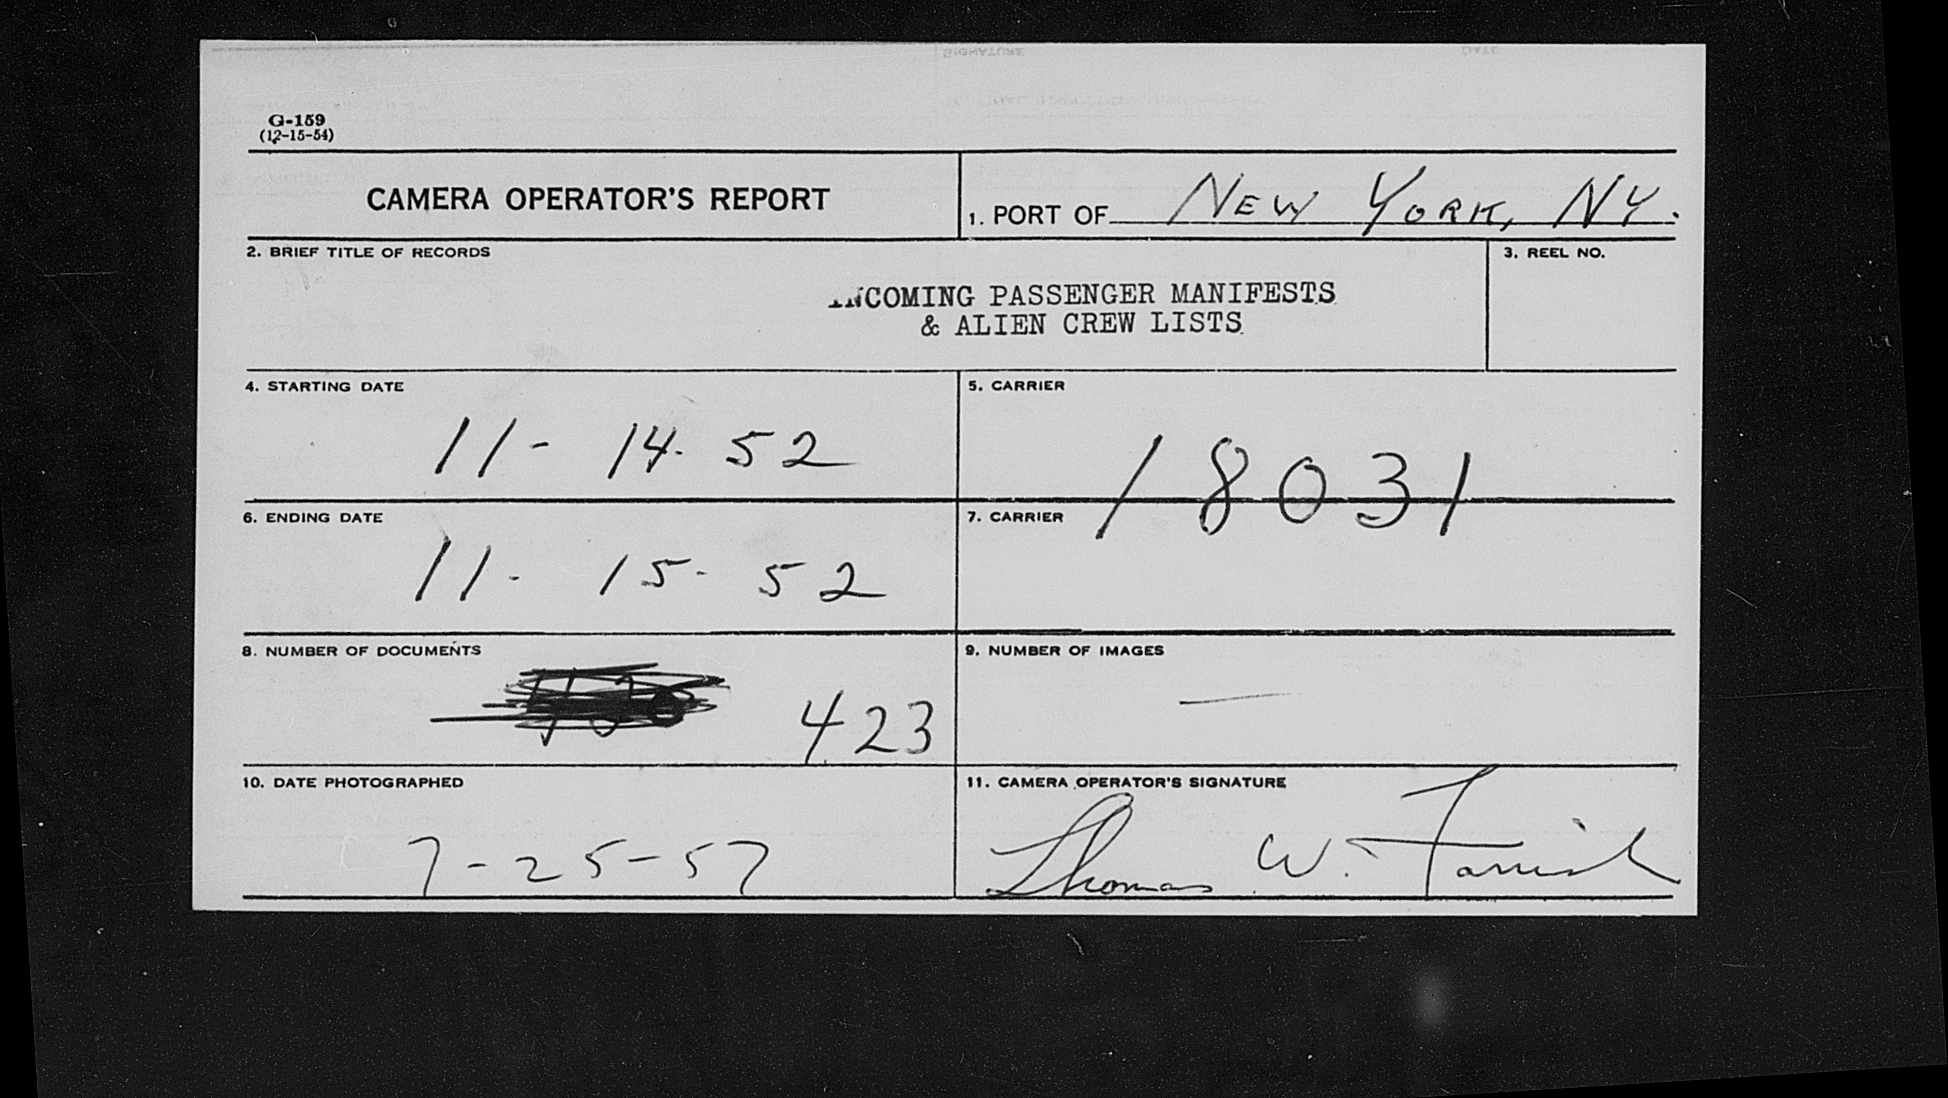 G-159
(12-15-54)
CAMERA OPERATOR'S REPORT
1. PORT OF NEW YORK, NY.
2. BRIEF TITLE OF RECORDS
INCOMING PASSENGER MANIFESTS
& ALIEN CREW LISTS
3. REEL NO.
4. STARTING DATE
11-14-52
5. CARRIER
18031
6. ENDING DATE
11-15-52
7. CARRIER
8. NUMBER OF DOCUMENTS
423
9. NUMBER OF IMAGES
—
10. DATE PHOTOGRAPHED
7-25-57
11. CAMERA OPERATOR'S SIGNATURE
Thomas W. Farrish